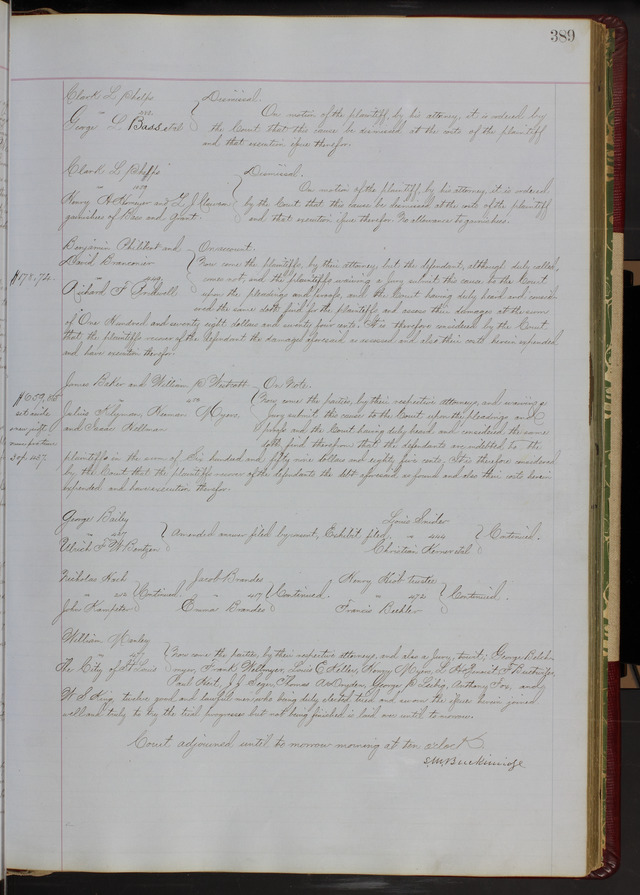 389
Clark L. Phelps } Dismissal.
George L. Bass et al } On motion of the plaintiff, by his attorney, it is ordered by
the Court that this cause be dismissed at the costs of the plaintiff
and that execution issue therefor.
Clark L. Phelps } Dismissal.
" On motion of the plaintiff by his attorney it is ordered
Henry and L. J. } by the Court that this cause be dismissed at the costs of the plaintiff
garnishees of Bass and Grant. and that execution issue therefor. No allowance to garnishees.
Benjamin Philibert and } On account.
David } Now come the plaintiffs, by their attorney, but the defendant, although duly called,
$178.74. comes not, and the plaintiffs waiving a Jury submit this cause to the Court
Richard F. upon the pleadings and proofs, and the Court having duly heard and consid-
ered the same doth find for the plaintiffs and assess their damages at the sum
of One Hundred and seventy eight dollars and seventy four cents. It is therefore considered by the Court
that the plaintiffs recover of the defendant the damages aforesaid so assessed and also their costs herein expended
and have execution therefor.
James Baker and William R } On Note.
$659.85 Now come the parties, by their respective attorneys, and waiving a
set aside Julius and Myers } Jury submit this cause to the Court upon the pleadings and
and Isaac proofs and the Court having duly heard and considered the same
doth find therefrom that the defendants are indebted to the
plaintiffs in the sum of Six hundred and fifty nine dollars and eighty five cents. It is therefore considered
by the Court that the plaintiffs recover of the defendants the debt aforesaid so found and also their costs herein
expended and have execution therefor.
George Bailey } Amended answer filed by consent, Exhibit filed. Louis } Continued.
Ulrich F. W. Bentzen " 444 Christian et al
Nicholas Koch } Continued. Jacob Brandes } Continued. Henry trustee } Continued.
" 212 " 417 " 472
John Emma Brandes Francis Beehler
William Manley
" } Now come the parties, by their respective attorneys, and also a Jury, towit; George
The City of St Louis Frank Louis E Henry Myers, L.
Paul J. J. Thomas George R. Anthony Fox, and
W. S. King, twelve good and lawful men who being duly elected tried and sworn the issue herein joined
well and truly to try the trial progresses but not being finished is laid over until tomorrow.
Court adjourned until to morrow morning at ten o'clock.
S. M. Breckinridge